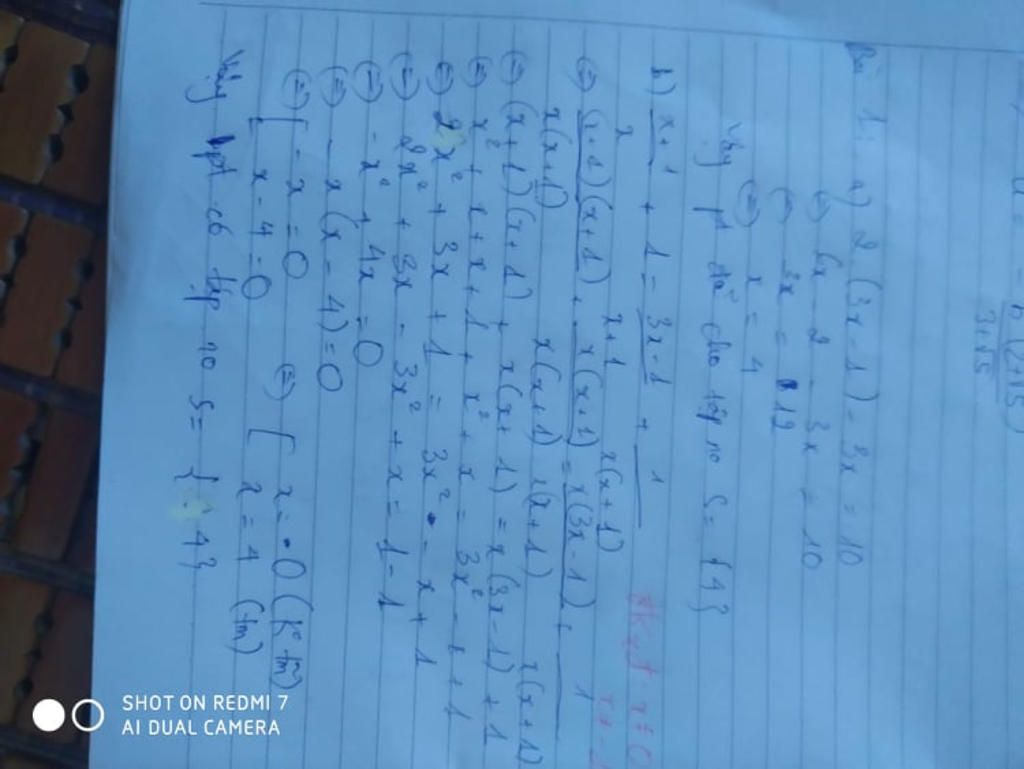 3+√5
Bài 1: a) 2(3x-1) - 3x = 10
⇔ 6x - 2 - 3x = 10
⇔ 3x = 12
⇔ x = 4
Vậy pt đã cho tập no S = {4}
b) x+1/x + 1 = 3x-1/x+1 + 1/x(x+1)
ĐKXĐ x ≠ 0
x ≠ -1
⇔ (x+1)(x+1)/x(x+1) + x(x+1)/x(x+1) = x(3x-1)/x(x+1) + 1/x(x+1)
⇔ (x+1)(x+1) + x(x+1) = x(3x-1) + 1
⇔ x² + x + x + 1 + x² + x = 3x² - x + 1
⇔ 2x² + 3x + 1 = 3x² - x + 1
⇔ 2x² + 3x - 3x² + x = 1 - 1
⇔ -x² + 4x = 0
⇔ -x(x - 4) = 0
⇔ [ -x = 0 ⇔ [ x = 0 (K° tm)
x - 4 = 0 x = 4 (tm)
Vậy pt có tập no S = {4}
SHOT ON REDMI 7
AI DUAL CAMERA